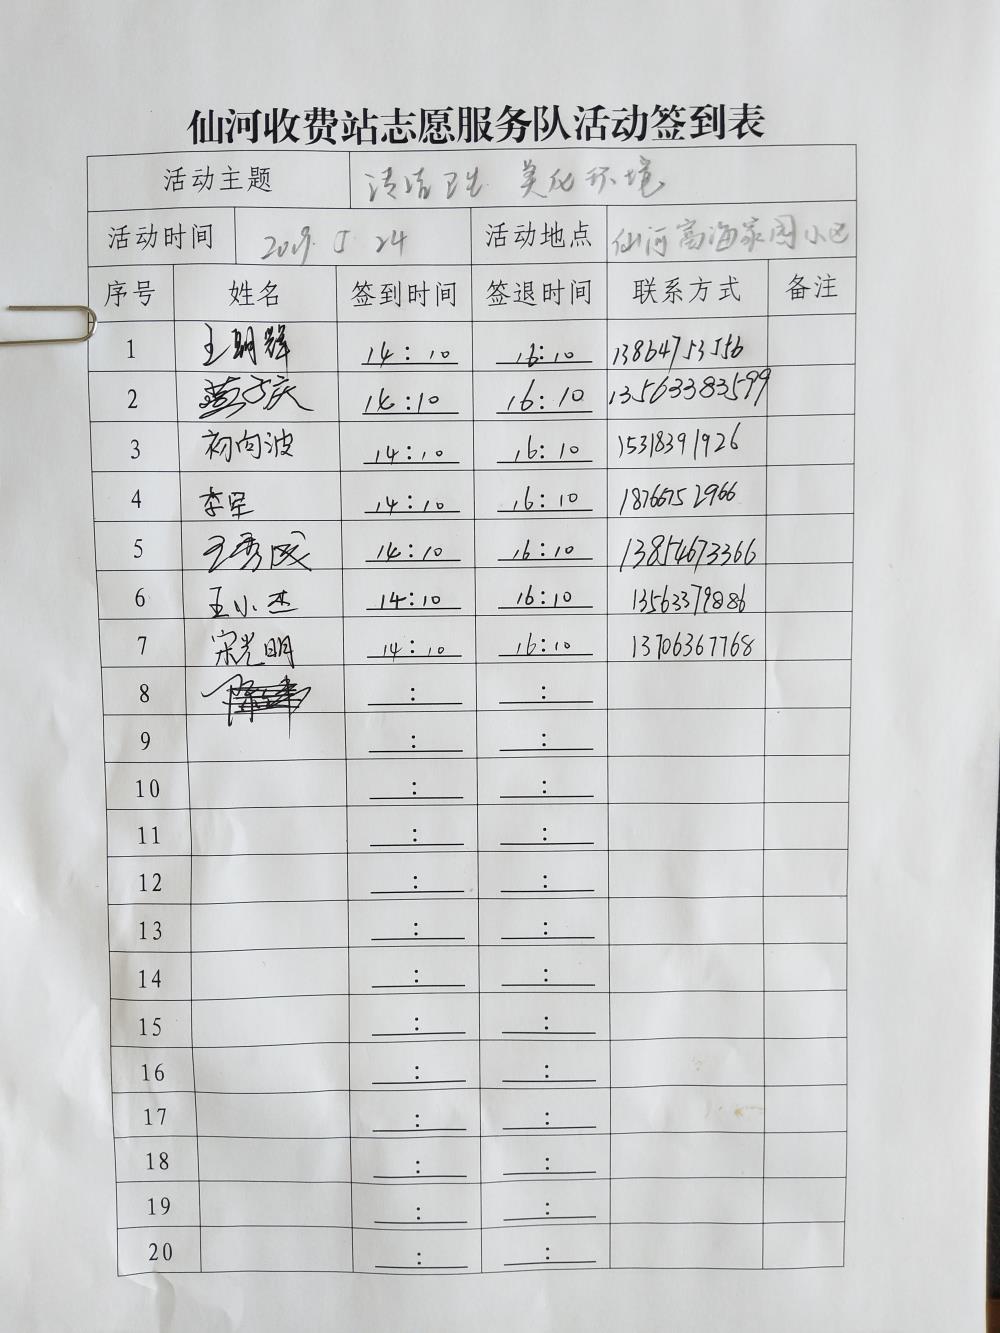 仙河收费站志愿服务队活动签到表
活动主题 清洁卫生 美化环境
活动时间 2019.5.24 活动地点 仙河富海家园小区
序号 姓名 签到时间 签退时间 联系方式 备注
1 王明辉 14:10 16:10 13864753556
2 14:10 16:10 13563383599
3 初向波 14:10 16:10 15318391926
4 李军 14:10 16:10 18766752966
5 王秀成 14:10 16:10 13854673366
6 王小杰 14:10 16:10 13563379886
7 宋光明 14:10 16:10 13706367768
8 : :
9 : :
10 : :
11 : :
12 : :
13 : :
14 : :
15 : :
16 : :
17 : :
18 : :
19 : :
20 : :